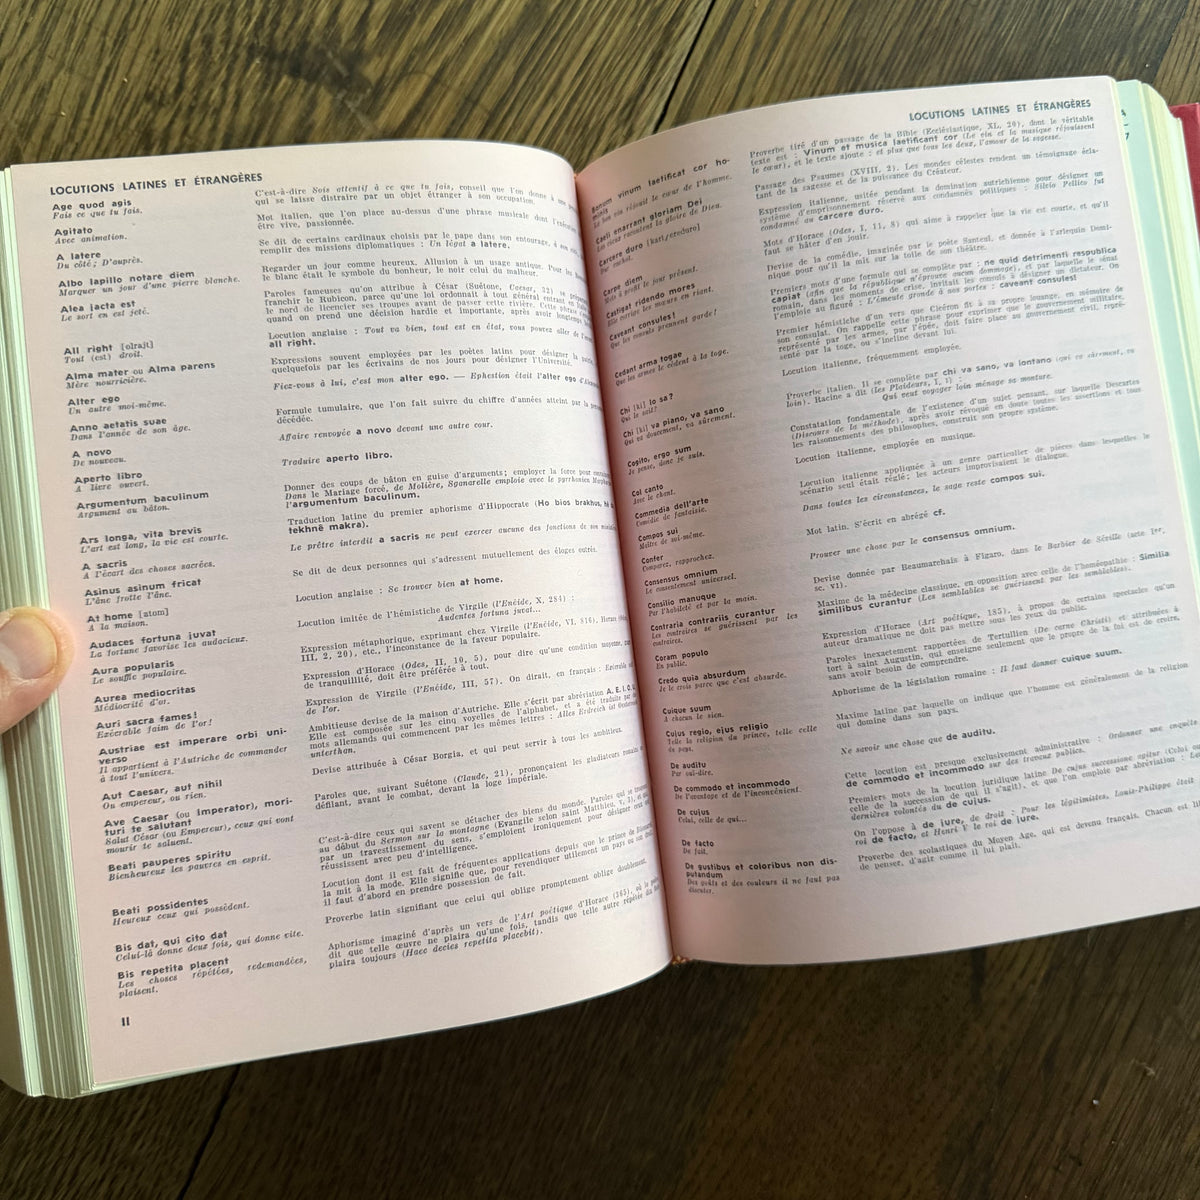 LOCUTIONS LATINES ET ÉTRANGÈRES
Age quod agis
Fais ce que tu fais.
C'est-à-dire Sois attentif à ce que tu fais, conseil que l'on donne à
qui se laisse distraire par un objet étranger à son occupation.
Agitato
Avec animation.
Mot italien, que l'on place au-dessus d'une phrase musicale dont
être vive, passionnée.
A latere
Du côté ; D'auprès.
Se dit de certains cardinaux choisis par le pape dans son entourage,
remplir des missions diplomatiques : Un légat a latere.
Albo lapillo notare diem
Marquer un jour d'une pierre blanche.
Regarder un jour comme heureux. Allusion à un usage antique. Pour les
le blanc était le symbole du bonheur, le noir celui du malheur.
Alea jacta est
Le sort en est jeté.
Paroles fameuses qu'on attribue à César (Suétone, Caesar, 32) se
franchir le Rubicon, parce qu'une loi ordonnait à tout général entrant en
le nord de licencier ses troupes avant de passer cette rivière. Cette
quand on prend une décision hardie et importante, après avoir longtemps
All right [olrajt]
Tout (est) droit.
Locution anglaise : Tout va bien, tout est en état, vous pouvez aller de
all right.
Alma mater ou Alma parens
Mère nourricière.
Expressions souvent employées par les poètes latins pour désigner la
quelquefois par les écrivains de nos jours pour désigner l'Université.
Alter ego
Un autre moi-même.
Fiez-vous à lui, c'est mon alter ego. — Ephestion était l'alter ego
Anno aetatis suae
Dans l'année de son âge.
Formule tumulaire, que l'on fait suivre du chiffre d'années atteint par la
décédée.
A novo
De nouveau.
Affaire renvoyée a novo devant une autre cour.
Aperto libro
A livre ouvert.
Traduire aperto libro.
Argumentum baculinum
Argument au bâton.
Donner des coups de bâton en guise d'arguments ; employer la force pour
Dans le Mariage forcé, de Molière, Sganarelle emploie avec le pyrrhonien
l'argumentum baculinum.
Ars longa, vita brevis
L'art est long, la vie est courte.
Traduction latine du premier aphorisme d'Hippocrate (Ho bios brakhus,
tekhnê makra).
A sacris
A l'écart des choses sacrées.
Le prêtre interdit a sacris ne peut exercer aucune des fonctions de son
Asinus asinum fricat
L'âne frotte l'âne.
Se dit de deux personnes qui s'adressent mutuellement des éloges outrés.
At home [atom]
A la maison.
Locution anglaise : Se trouver bien at home.
Audaces fortuna juvat
La fortune favorise les audacieux.
Locution imitée de l'hémistiche de Virgile (l'Enéide, X, 284) :
Audentes fortuna juvat...
Aura popularis
Le souffle populaire.
Expression métaphorique, exprimant chez Virgile (l'Enéide, VI, 816), Horace
III, 2, 20), etc., l'inconstance de la faveur populaire.
Aurea mediocritas
Médiocrité d'or.
Expression d'Horace (Odes, II, 10, 5), pour dire qu'une condition moyenne,
de tranquillité, doit être préférée à tout.
Auri sacra fames !
Exécrable faim de l'or !
Expression de Virgile (l'Enéide, III, 57). On dirait, en français :
de l'or.
Austriae est imperare orbi uni-
verso
Il appartient à l'Autriche de commander
à tout l'univers.
Ambitieuse devise de la maison d'Autriche. Elle s'écrit par abréviation A. E. I. O. U.
Elle est composée sur les cinq voyelles de l'alphabet, et a été traduite par
mots allemands qui commencent par les mêmes lettres : Alles Erdreich ist
unterthan.
Aut Caesar, aut nihil
Ou empereur, ou rien.
Devise attribuée à César Borgia, et qui peut servir à tous les ambitieux.
Ave Caesar (ou Imperator), mori-
turi te salutant
Salut César (ou Empereur), ceux qui vont
mourir te saluent.
Paroles que, suivant Suétone (Claude, 21), prononçaient les gladiateurs romains
défilant, avant le combat, devant la loge impériale.
Beati pauperes spiritu
Bienheureux les pauvres en esprit.
C'est-à-dire ceux qui savent se détacher des biens du monde. Paroles qui se
au début du Sermon sur la montagne (Evangile selon saint Matthieu, V, 3), et
par un travestissement du sens, s'emploient ironiquement pour désigner ceux
réussissent avec peu d'intelligence.
Beati possidentes
Heureux ceux qui possèdent.
Locution dont il est fait de fréquentes applications depuis que le prince de Bismarck
la mit à la mode. Elle signifie que, pour revendiquer utilement un pays ou
il faut d'abord en prendre possession de fait.
Bis dat, qui cito dat
Celui-là donne deux fois, qui donne vite.
Proverbe latin signifiant que celui qui oblige promptement oblige doublement.
Bis repetita placent
Les choses répétées, redemandées,
plaisent.
Aphorisme imaginé d'après un vers de l'Art poétique d'Horace (365), où
dit que telle œuvre ne plaira qu'une fois, tandis que telle autre répétée
plaira toujours (Haec decies repetita placebit).
II
LOCUTIONS LATINES ET ÉTRANGÈRES
Bonum vinum laetificat cor ho-
minis
Le bon vin réjouit le cœur de l'homme.
Proverbe tiré d'un passage de la Bible (Ecclésiastique, XL, 20), dont le véritable
texte est : Vinum et musica laetificant cor (Le vin et la musique réjouissent
le cœur), et le texte ajoute : et plus que tous les deux, l'amour de la sagesse.
Caeli enarrant gloriam Dei
Les cieux racontent la gloire de Dieu.
Passage des Psaumes (XVIII, 2). Les mondes célestes rendent un témoignage écla-
tant de la sagesse et de la puissance du Créateur.
Carcere duro [karʃereduro]
Dur cachot.
Expression italienne, usitée pendant la domination autrichienne pour désigner un
système d'emprisonnement réservé aux condamnés politiques : Silvio Pellico fut
condamné au carcere duro.
Carpe diem
Mets à profit le jour présent.
Mots d'Horace (Odes, I, 11, 8) qui aime à rappeler que la vie est courte, et qu'il
faut se hâter d'en jouir.
Castigat ridendo mores
Elle corrige les mœurs en riant.
Devise de la comédie, imaginée par le poète Santeul, et donnée à l'arlequin Domi-
nique pour qu'il la mît sur la toile de son théâtre.
Caveant consules !
Que les consuls prennent garde !
Premiers mots d'une formule qui se complète par : ne quid detrimenti respublica
capiat (afin que la république n'éprouve aucun dommage), et par laquelle le sénat
romain, dans les moments de crise, invitait les consuls à désigner un dictateur. On
l'emploie au figuré : L'émeute gronde à nos portes : caveant consules!
Cedant arma togae
Que les armes le cèdent à la toge.
Premier hémistiche d'un vers que Cicéron fit à sa propre louange, en mémoire de
son consulat. On rappelle cette phrase pour exprimer que le gouvernement militaire,
représenté par les armes, par l'épée, doit faire place au gouvernement civil, repré-
senté par la toge, ou s'incline devant lui.
Chi [ki] lo sa ?
Qui le sait ?
Locution italienne, fréquemment employée.
Chi [ki] va piano, va sano
Qui va doucement, va sûrement.
Proverbe italien. Il se complète par chi va sano, va lontano (qui va sûrement, va
loin). Racine a dit (les Plaideurs, I, 1) :
Qui veut voyager loin ménage sa monture.
Cogito, ergo sum
Je pense, donc je suis.
Constatation fondamentale de l'existence d'un sujet pensant, sur laquelle Descartes
(Discours de la méthode), après avoir révoqué en doute toutes les assertions et tous
les raisonnements des philosophes, construit son propre système.
Col canto
Avec le chant.
Locution italienne, employée en musique.
Commedia dell'arte
Comédie de fantaisie.
Locution italienne appliquée à un genre particulier de pièces dans lesquelles le
scénario seul était réglé ; les acteurs improvisaient le dialogue.
Compos sui
Maître de soi-même.
Dans toutes les circonstances, le sage reste compos sui.
Confer
Comparez, rapprochez.
Mot latin. S'écrit en abrégé cf.
Consensus omnium
Le consentement universel.
Prouver une chose par le consensus omnium.
Consilio manuque
Par l'habileté et par la main.
Devise donnée par Beaumarchais à Figaro, dans le Barbier de Séville (acte Ier,
sc. VI).
Contraria contrariis curantur
Les contraires se guérissent par les
contraires.
Maxime de la médecine classique, en opposition avec celle de l'homéopathie : Similia
similibus curantur (Les semblables se guérissent par les semblables).
Coram populo
En public.
Expression d'Horace (Art poétique, 185), à propos de certains spectacles qu'un
auteur dramatique ne doit pas mettre sous les yeux du public.
Credo quia absurdum
Je le crois parce que c'est absurde.
Paroles inexactement rapportées de Tertullien (De carne Christi) et attribuées à
tort à saint Augustin, qui enseigne seulement que le propre de la foi est de croire,
sans avoir besoin de comprendre.
Cuique suum
A chacun le sien.
Aphorisme de la législation romaine : Il faut donner cuique suum.
Cujus regio, ejus religio
Telle la religion du prince, telle celle
du pays.
Maxime latine par laquelle on indique que l'homme est généralement de la religion
qui domine dans son pays.
De auditu
Par ouï-dire.
Ne savoir une chose que de auditu.
De commodo et incommodo
De l'avantage et de l'inconvénient.
Cette locution est presque exclusivement administrative : Ordonner une enquête
de commodo et incommodo sur des travaux publics.
De cujus
Celui, celle de qui...
Premiers mots de la locution juridique latine De cujus successione agitur (Celui ou
celle de la succession de qui il s'agit), et que l'on emploie par abréviation : Les
dernières volontés du de cujus.
De facto
De fait.
On l'oppose à de jure, de droit : Pour les légitimistes, Louis-Philippe était
roi de facto, et Henri V le roi de jure.
De gustibus et coloribus non dis-
putandum
Des goûts et des couleurs il ne faut pas
discuter.
Proverbe des scolastiques du Moyen Age, qui est devenu français. Chacun est
de penser, d'agir comme il lui plaît.